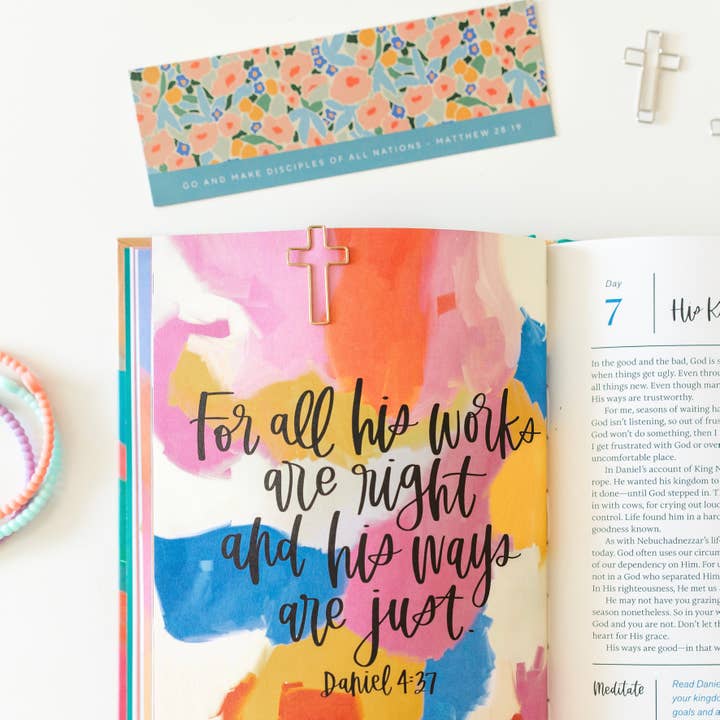 GO AND MAKE DISCIPLES OF ALL NATIONS - MATTHEW 28:19
For all his works
are right
and his ways
are just.
Daniel 4:37
Day
7
His
In the good and the bad, God is
when things get ugly. Even
all things new. Even though
His ways are trustworthy.
For me, seasons of waiting
God isn't listening, so out of
God won't do something, then I
I get frustrated with God or
uncomfortable place.
In Daniel's account of King
rope. He wanted his kingdom to
it done—until God stepped in.
in with cows, for crying out
control. Life found him in a
goodness known.
As with Nebuchadnezzar's
today. God often uses our
of our dependency on Him. For
not in a God who separated Him
In His righteousness, He met us
He may not have you grazing
season nonetheless. So in your
God and you are not. Don't let
heart for His grace.
His ways are good—in that
Meditate
Read
your
goals and